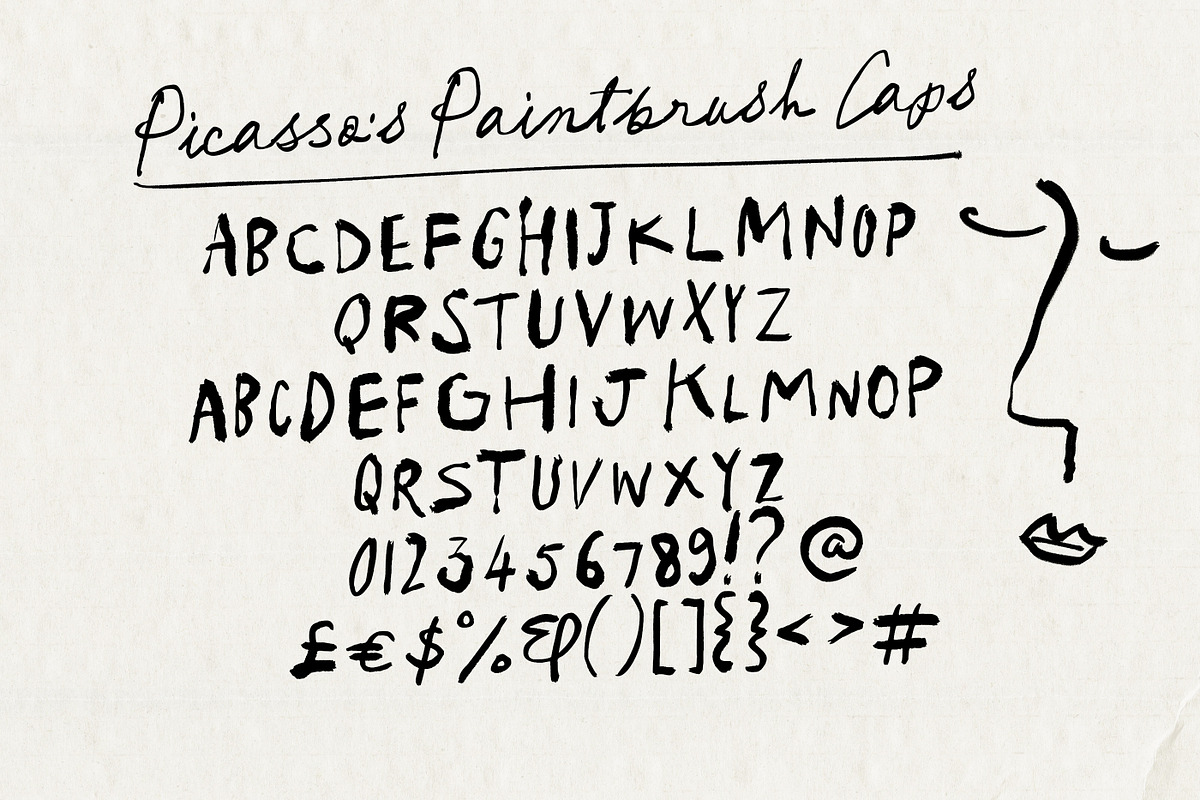 Picasso's Paintbrush Caps
ABCDEFGHIJKLMNOP
QRSTUVWXYZ
ABCDEFGHIJKLMNOP
QRSTUVWXYZ
0123456789!?@
£€$%&()[]{}<>#